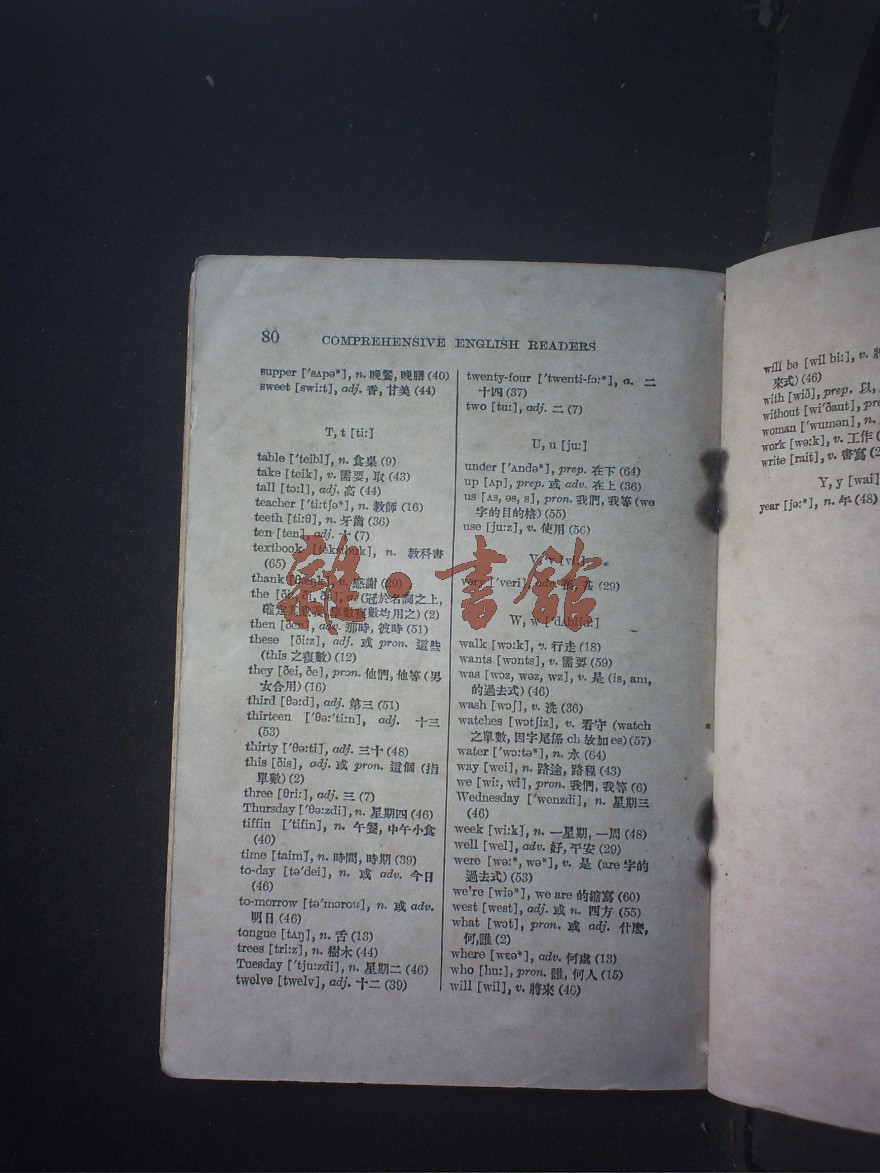 80 COMPREHENSIVE ENGLISH READERS
supper ['sʌpə*], n. 晚餐, 晚膳 (40)
sweet [swi:t], adj. 香, 甘美 (44)
T, t [ti:]
table ['teibl], n. 食桌 (9)
take [teik], v. 需要, 取 (43)
tall [tɔ:l], adj. 高 (44)
teacher ['ti:tʃə*], n. 教師 (16)
teeth [ti:θ], n. 牙齒 (36)
ten [ten], adj. 十 (7)
textbook ['tekstbuk], n. 教科書
(65)
thank [θæŋk], v. 感謝 (29)
the [ði:, ði, ðə], a. (冠於名詞之上,
確定其意義, 單數複數均用之) (2)
then [ðen], adv. 那時, 彼時 (51)
these [ði:z], adj. 或 pron. 這些
(this 之複數) (12)
they [ðei, ðe], pron. 他們, 他等 (男
女合用) (16)
third [θə:d], adj. 第三 (51)
thirteen ['θə:'ti:n], adj. 十三
(53)
thirty ['θə:ti], adj. 三十 (48)
this [ðis], adj. 或 pron. 這個 (指
單數) (2)
three [θri:], adj. 三 (7)
Thursday ['θə:zdi], n. 星期四 (46)
tiffin ['tifin], n. 午餐, 中午小食
(40)
time [taim], n. 時間, 時期 (39)
to-day [tə'dei], n. 或 adv. 今日
(46)
to-morrow [tə'mɔrou], n. 或 adv.
明日 (46)
tongue [tʌŋ], n. 舌 (13)
trees [tri:z], n. 樹木 (44)
Tuesday ['tju:zdi], n. 星期二 (46)
twelve [twelv], adj. 十二 (39)
twenty-four ['twenti-fɔ:*], a. 二
十四 (37)
two [tu:], adj. 二 (7)
U, u [ju:]
under ['ʌndə*], prep. 在下 (64)
up [ʌp], prep. 或 adv. 在上 (36)
us [ʌs, əs, s], pron. 我們, 我等 (we
字的目的格) (55)
use [ju:z], v. 使用 (56)
V, v [vi:]
very ['veri], adv. 很, 甚 (29)
W, w ['dʌblju:]
walk [wɔ:k], v. 行走 (18)
wants [wɔnts], v. 需要 (59)
was [wɔz, wəz, wz], v. 是 (is, am,
的過去式) (46)
wash [wɔʃ], v. 洗 (36)
watches [wɔtʃiz], v. 看守 (watch
之單數, 因字尾係 ch 故加 es) (57)
water ['wɔ:tə*], n. 水 (64)
way [wei], n. 路途, 路程 (43)
we [wi:, wi], pron. 我們, 我等 (6)
Wednesday ['wenzdi], n. 星期三
(46)
week [wi:k], n. 一星期, 一周 (48)
well [wel], adv. 好, 平安 (29)
were [wə:*, wə*], v. 是 (are 字的
過去式) (53)
we're [wiə*], we are 的縮寫 (60)
west [west], adj. 或 n. 西方 (55)
what [wɔt], pron. 或 adj. 什麼,
何, 誰 (2)
where [wɛə*], adv. 何處 (13)
who [hu:], pron. 誰, 何人 (15)
will [wil], v. 將來 (46)
will be [wil bi:], v. 將
來式) (46)
with [wið], prep. 以,
without [wi'ðaut], pre
woman ['wumən], n.
work [wə:k], v. 工作 (
write [rait], v. 書寫 (2
Y, y [wai]
year [jə:*], n. 年 (48)
雜·書館